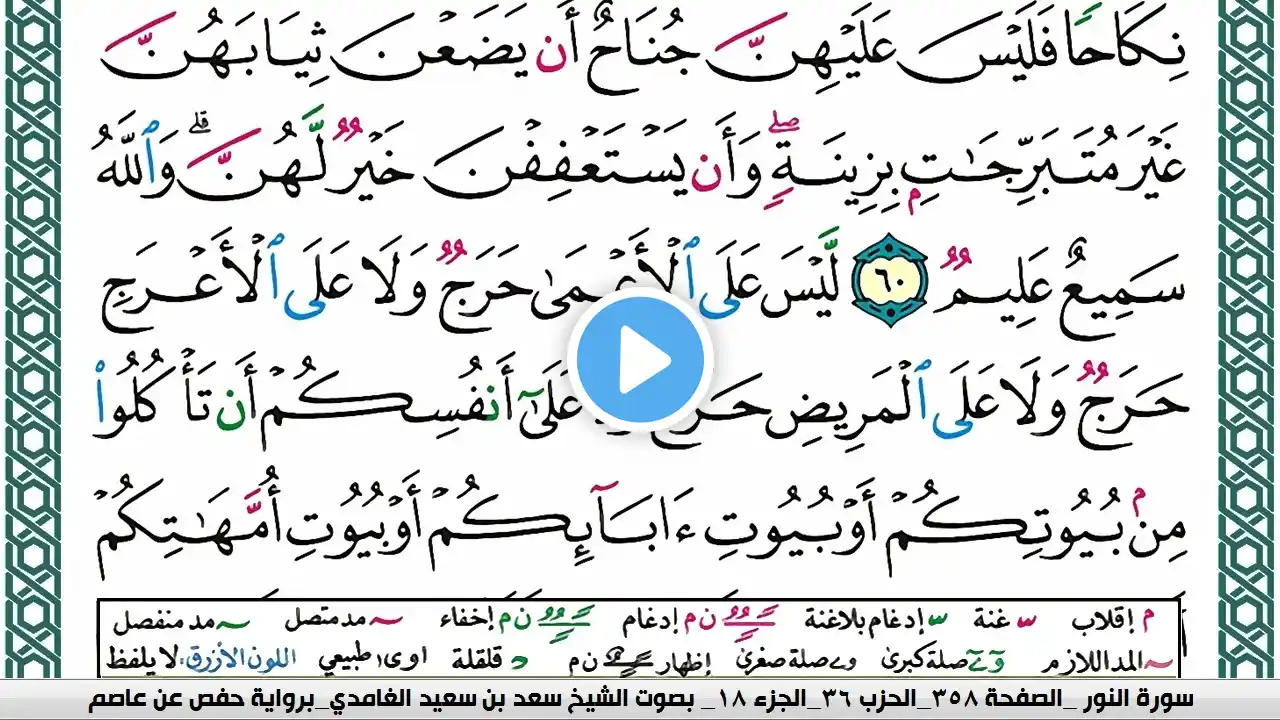 نِكَاحًا فَلَيْسَ عَلَيْهِنَّ جُنَاحٌ أَن يَضَعْنَ ثِيَابَهُنَّ
غَيْرَ مُتَبَرِّجَٰتِۭ بِزِينَةٖۖ وَأَن يَسْتَعْفِفْنَ خَيْرٞ لَّهُنَّۗ وَٱللَّهُ
سَمِيعٌ عَلِيمٞ ٦٠ لَّيْسَ عَلَى ٱلْأَعْمَىٰ حَرَجٞ وَلَا عَلَى ٱلْأَعْرَجِ
حَرَجٞ وَلَا عَلَى ٱلْمَرِيضِ عَلَىٰٓ أَنفُسِكُمْ أَن تَأْكُلُوا۟
مِنۢ بُيُوتِكُمْ أَوْ بُيُوتِ ءَابَآئِكُمْ أَوْ بُيُوتِ أُمَّهَٰتِكُمْ
م إقلاب ـس غنة ـس إدغام بلاغنة ن م إدغام ن م إخفاء ~ مد متصل ~ مد منفصل
~ المد اللازم صلة كبرى صلة صغرى ن م إظهار د قلقلة اوى طبيعي اللون الأزرق: لا يلفظ
سورة النور _الصفحة ٣٥٨_الحزب ٣٦_الجزء ١٨_ بصوت الشيخ سعد بن سعيد الغامدي_برواية حفص عن عاصم